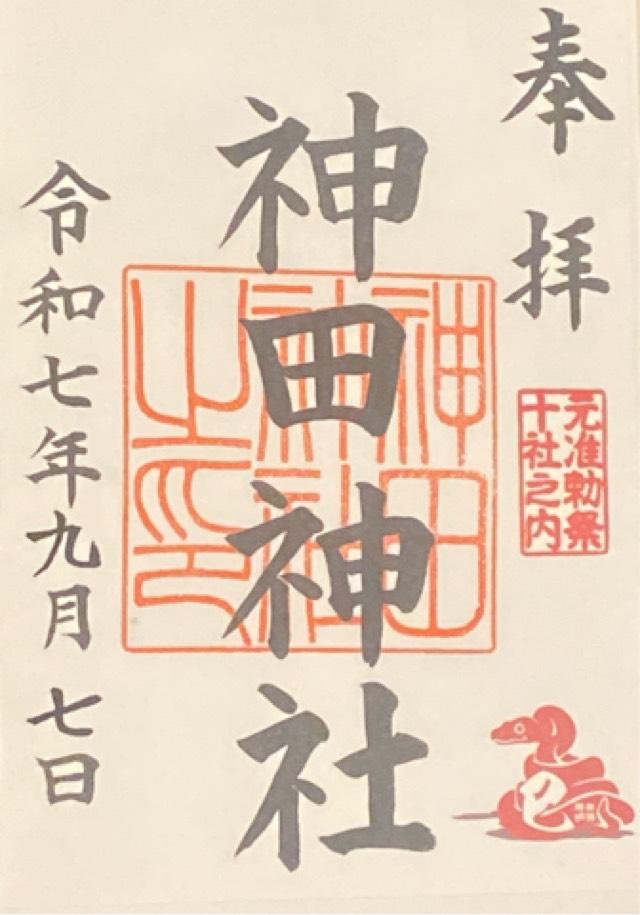 奉拝
元准勅祭
十社之内
神田神社
神田
神社
之印
巳
令和七年九月七日